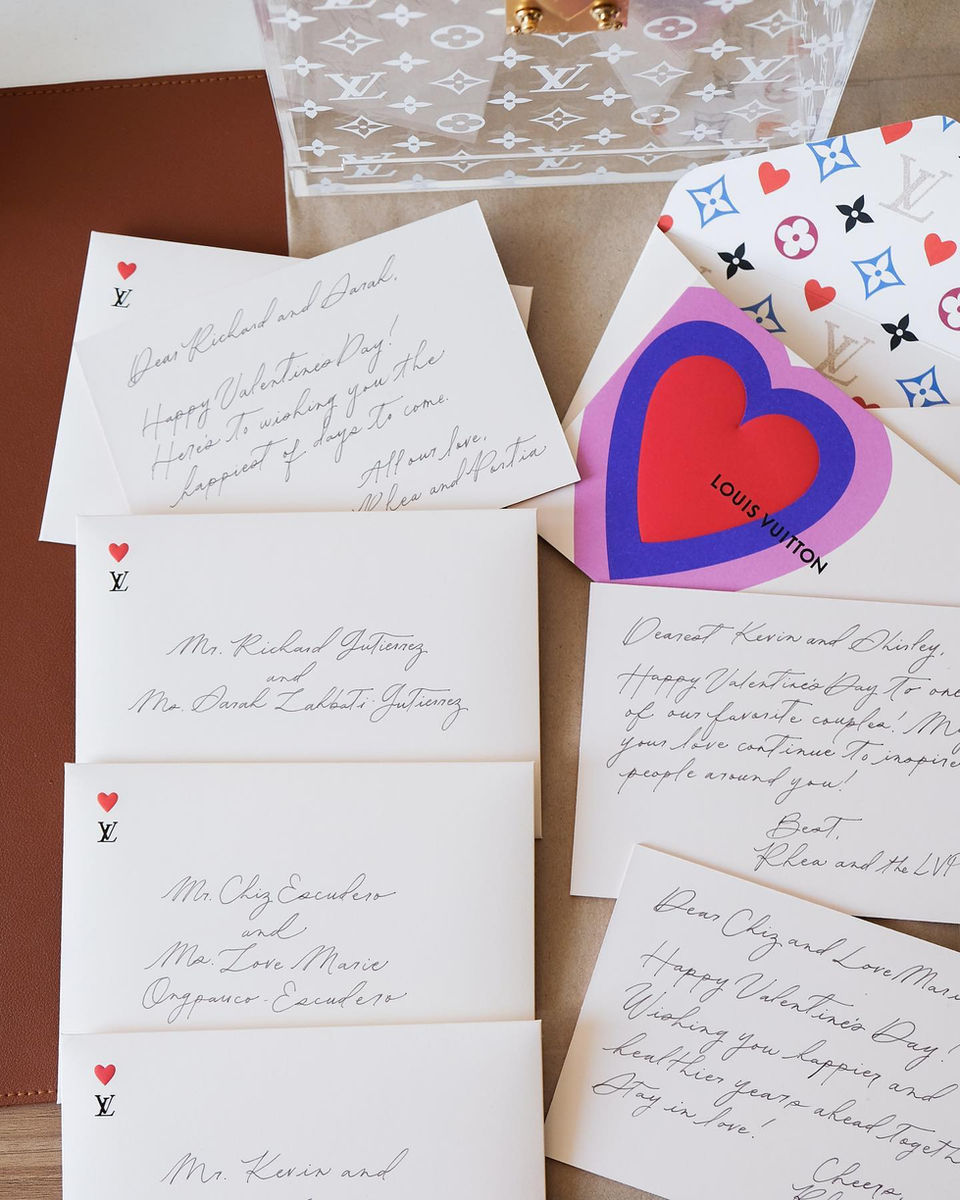 Dear Richard and Sarah,
Happy Valentine's Day!
Here's to wishing you the
happiest of days to come.
All our love,
Rhea and Portia
LOUIS VUITTON
LV
LV
Mr. Richard Gutierrez
and
Ms. Sarah Lahbati-Gutierrez
LV
Mr. Chiz Escudero
and
Ms. Love Marie
Ongpauco-Escudero
LV
Mr. Kevin and
Dearest Kevin and Shirley,
Happy Valentine's Day to one
of our favorite couples!
your love continue to inspire
people around you!
Best,
Rhea and the LVP
Dear Chiz and Love Mari
Happy Valentine's Day!
Wishing you happier and
healthier years ahead togeth
Stay in love!
Cheers,